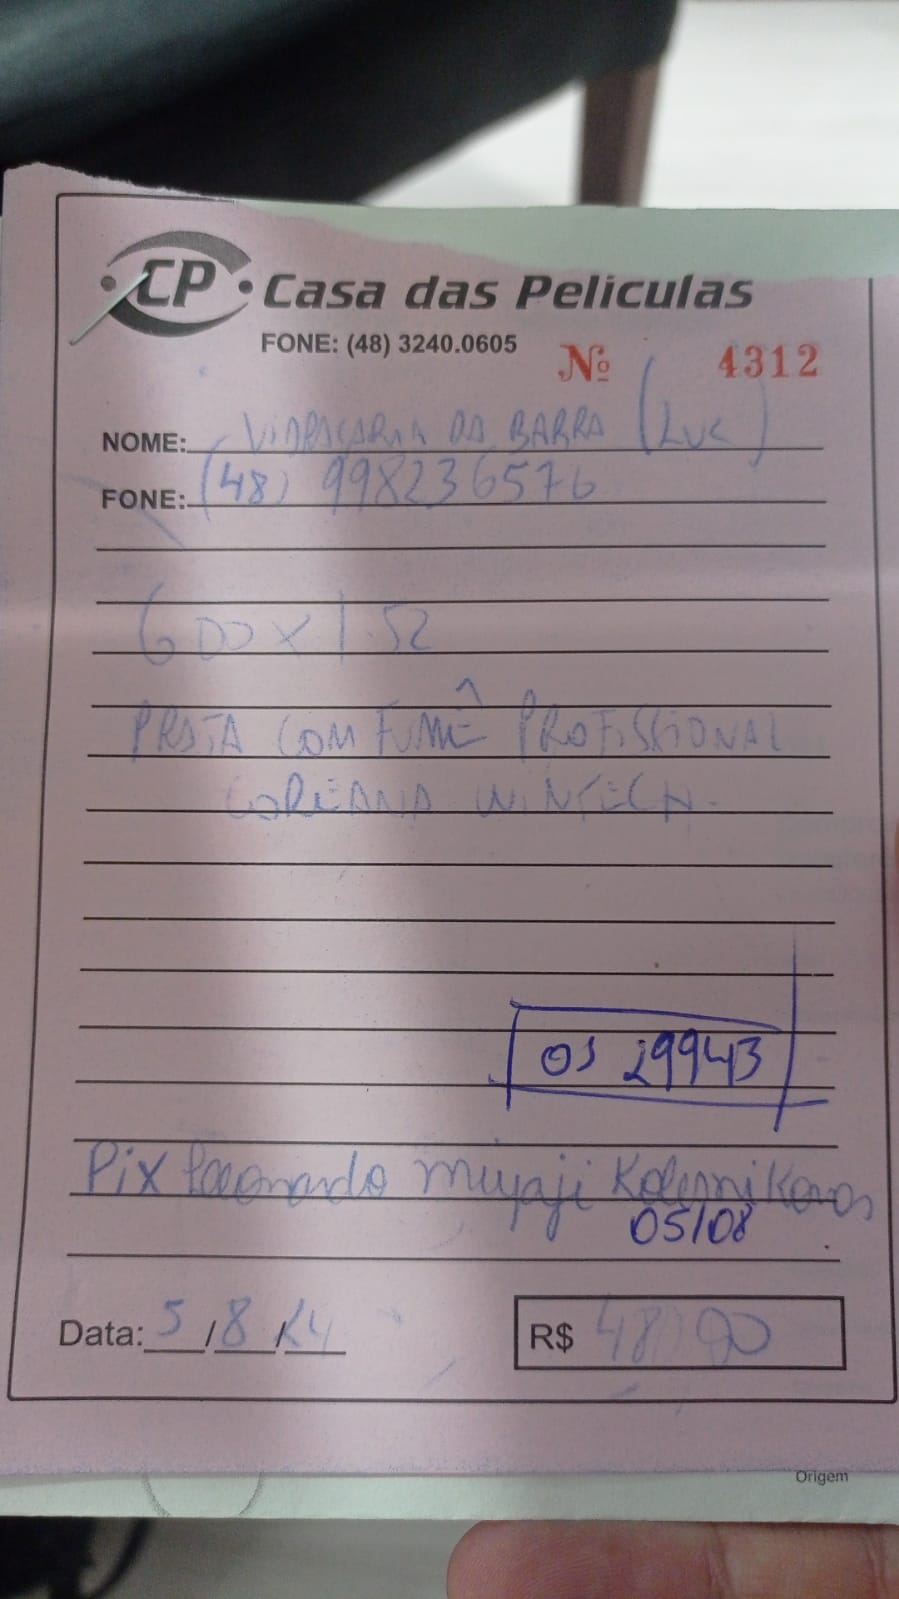 CP Casa das Peliculas
FONE: (48) 3240.0605
Nº 4312
NOME: VIDRAÇARIA DA BARRA (LUC)
FONE: (48) 998236576
600 x 1.52
PRATA COM FUMÊ PROFISSIONAL
COREANA WINTECH
OS 29943
Pix Leonardo Miyaji
05/08
Data: 5/8/24
R$
Origem